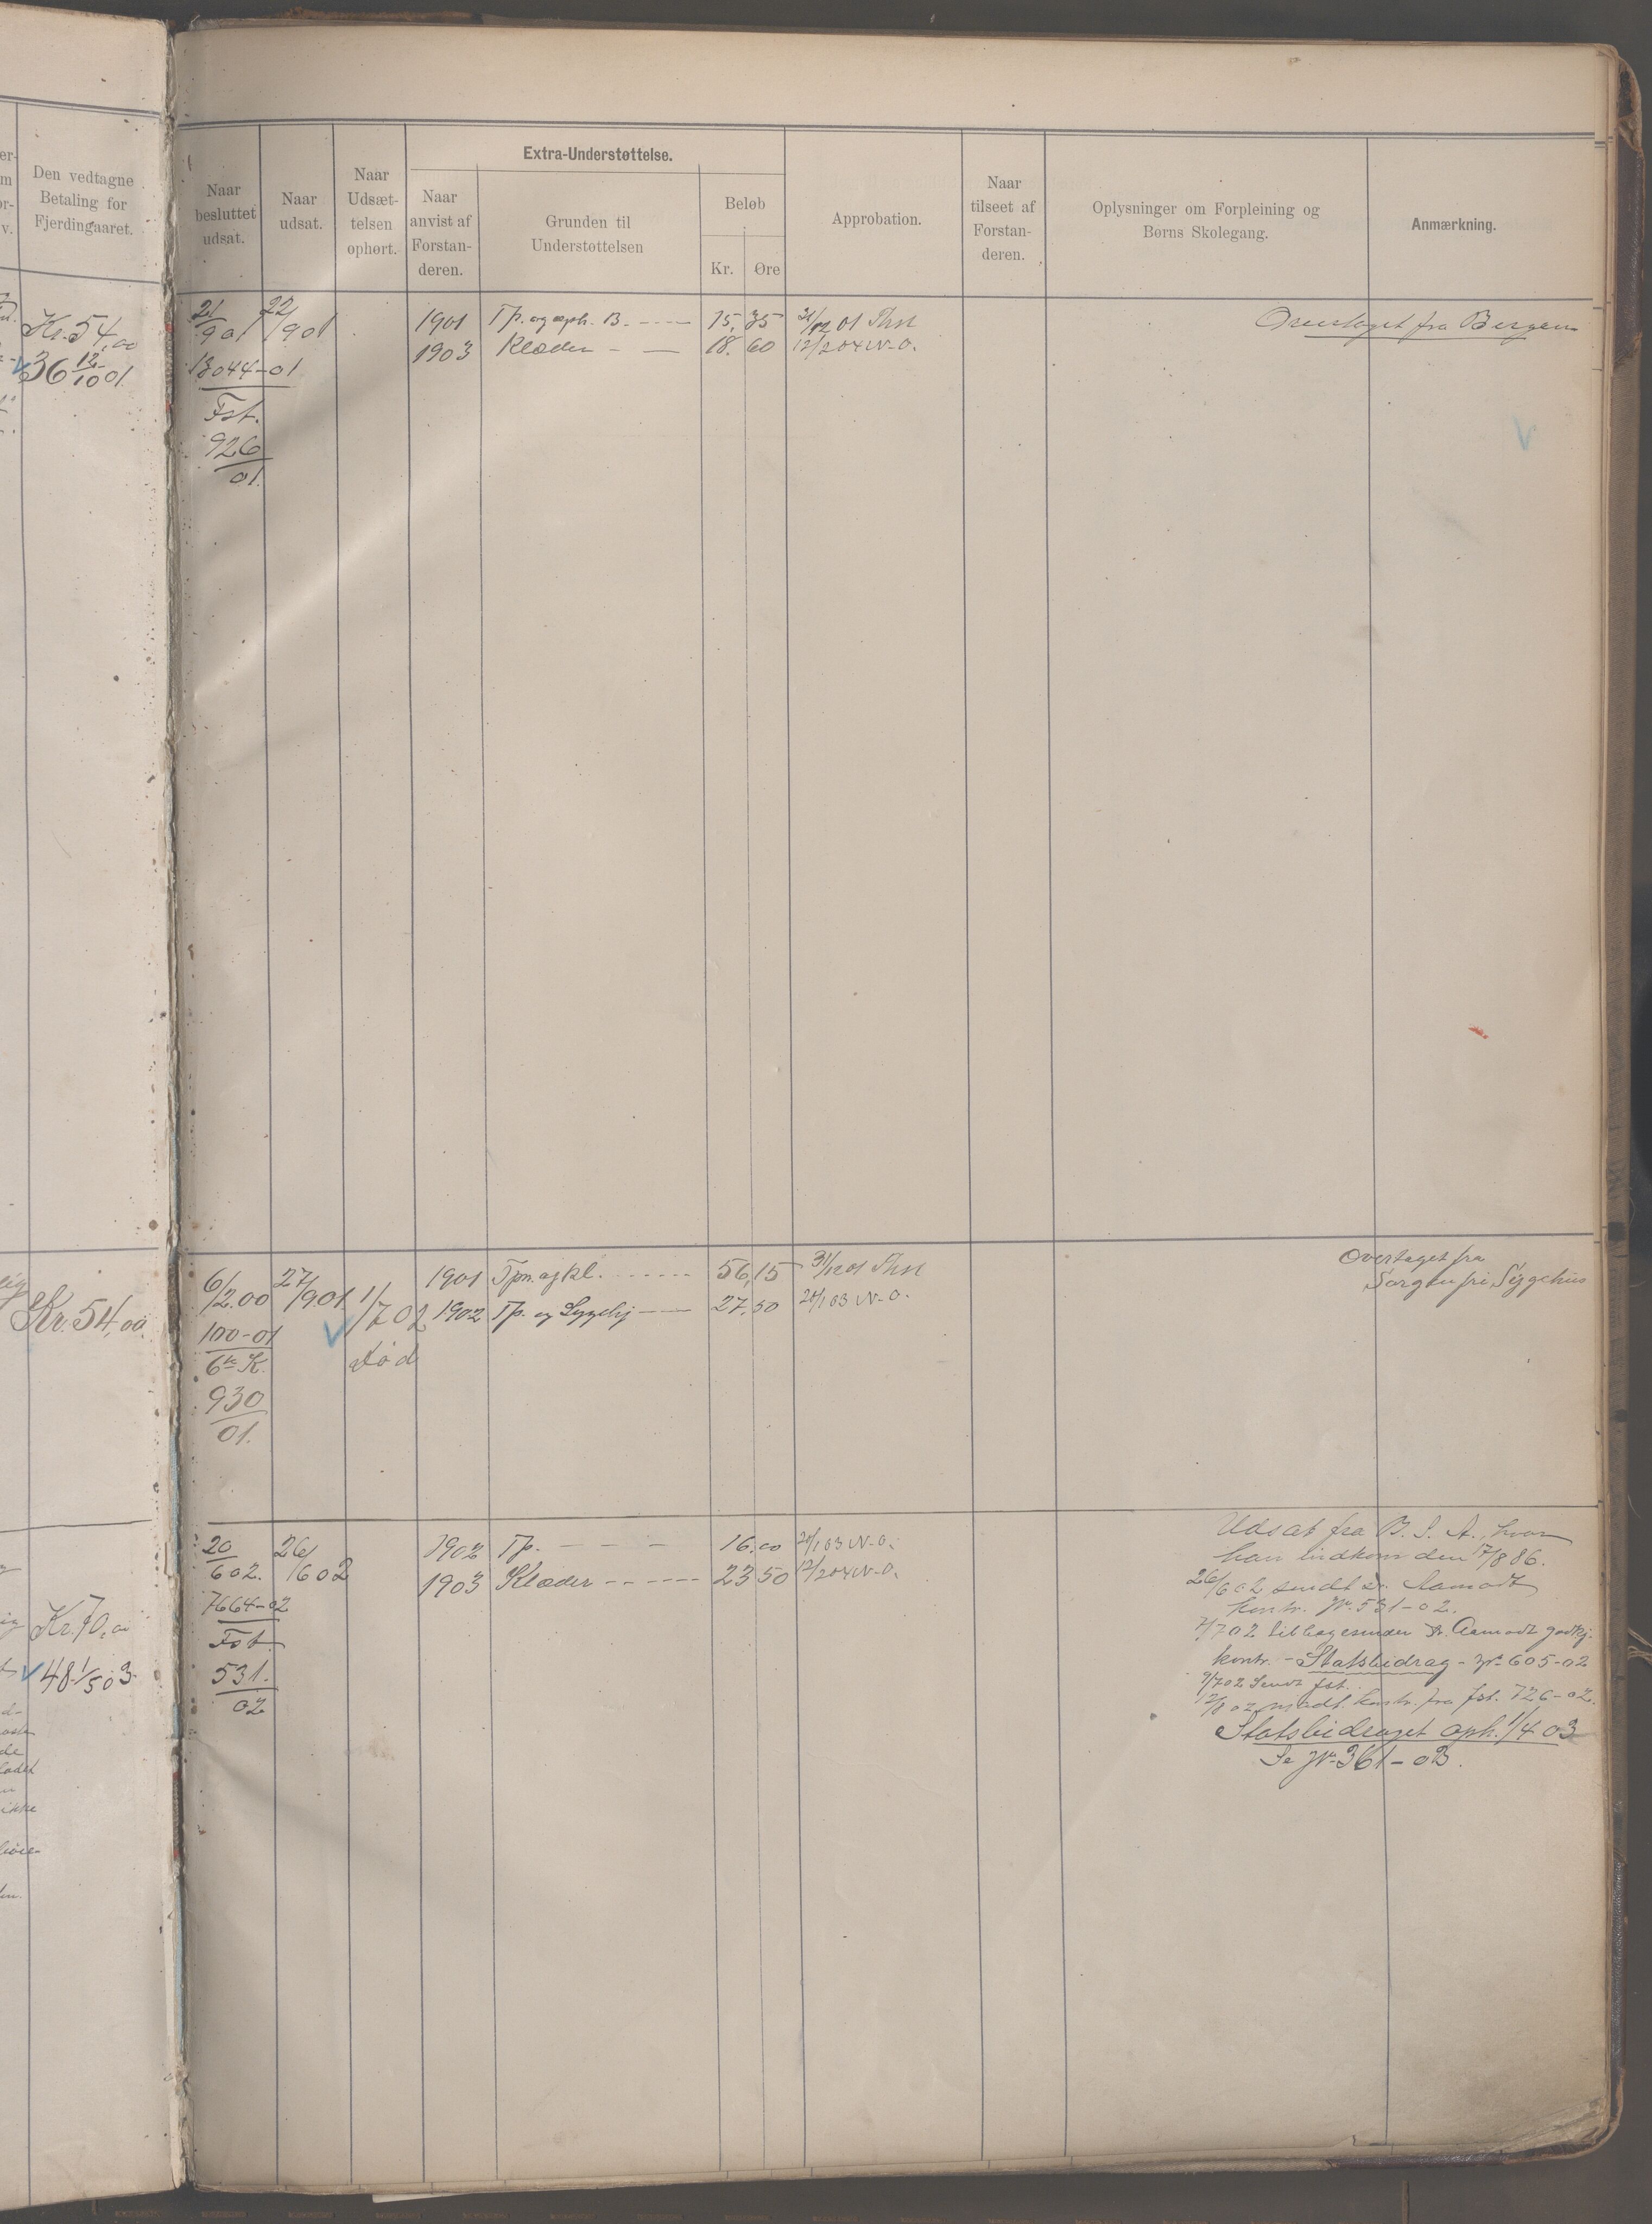 Den vedtagne
Betaling for
Fjerdingaaret.
Naar
besluttet
udsat.
Naar
udsat.
Naar
Udsæt-
telsen
ophørt.
Extra-Understøttelse.
Naar
anvist af
Forstan-
deren.
Grunden til
Understøttelsen
Beløb
Kr.
Øre
Approbation.
Naar
tilseet af
Forstan-
deren.
Oplysninger om Forpleining og
Børns Skolegang.
Anmærkning.
Kr. 54,00
36 12/10 01.
21/9 01
22/9 01
13044-01
Fst.
926
01.
1901 Tp. og oph. B. 15,35 31/12 01
1903 Klæder 18.60 12/2 04 N-O.
Overtaget fra Bergen
Kr. 54,00
6/2.00
27/9 01
1/7 02
Død
100-01
6te K.
930
01.
1901 56,15 31/12 01
1902 Tp. og Sygehj 27,50 20/1 03 N-O.
Overtaget fra
Sorgenfri Sygehus
Kr. 70,00
48 1/5 03
20/6 02.
26/6 02
7664-02
Fst.
531.
02
1902 Tp. 16.00 20/1 03 N-O.
1903 Klæder 23 50 12/2 04 N-O.
Udsat fra B. S. A., hvor
han indkom den 17/8 86.
26/6 02 sendt Dr. Aamodt
kontr. Nr. 531-02.
7/7 02 tilbagesender Dr. Aamodt godkj.
kontr. - Statsbidrag - Nr. 605-02
9/7 02 Sendt fst.
12/8 02 modt. kontr. fra fst. 726-02.
Statsbidraget oph. 1/4 03
Se Nr. 361-03.